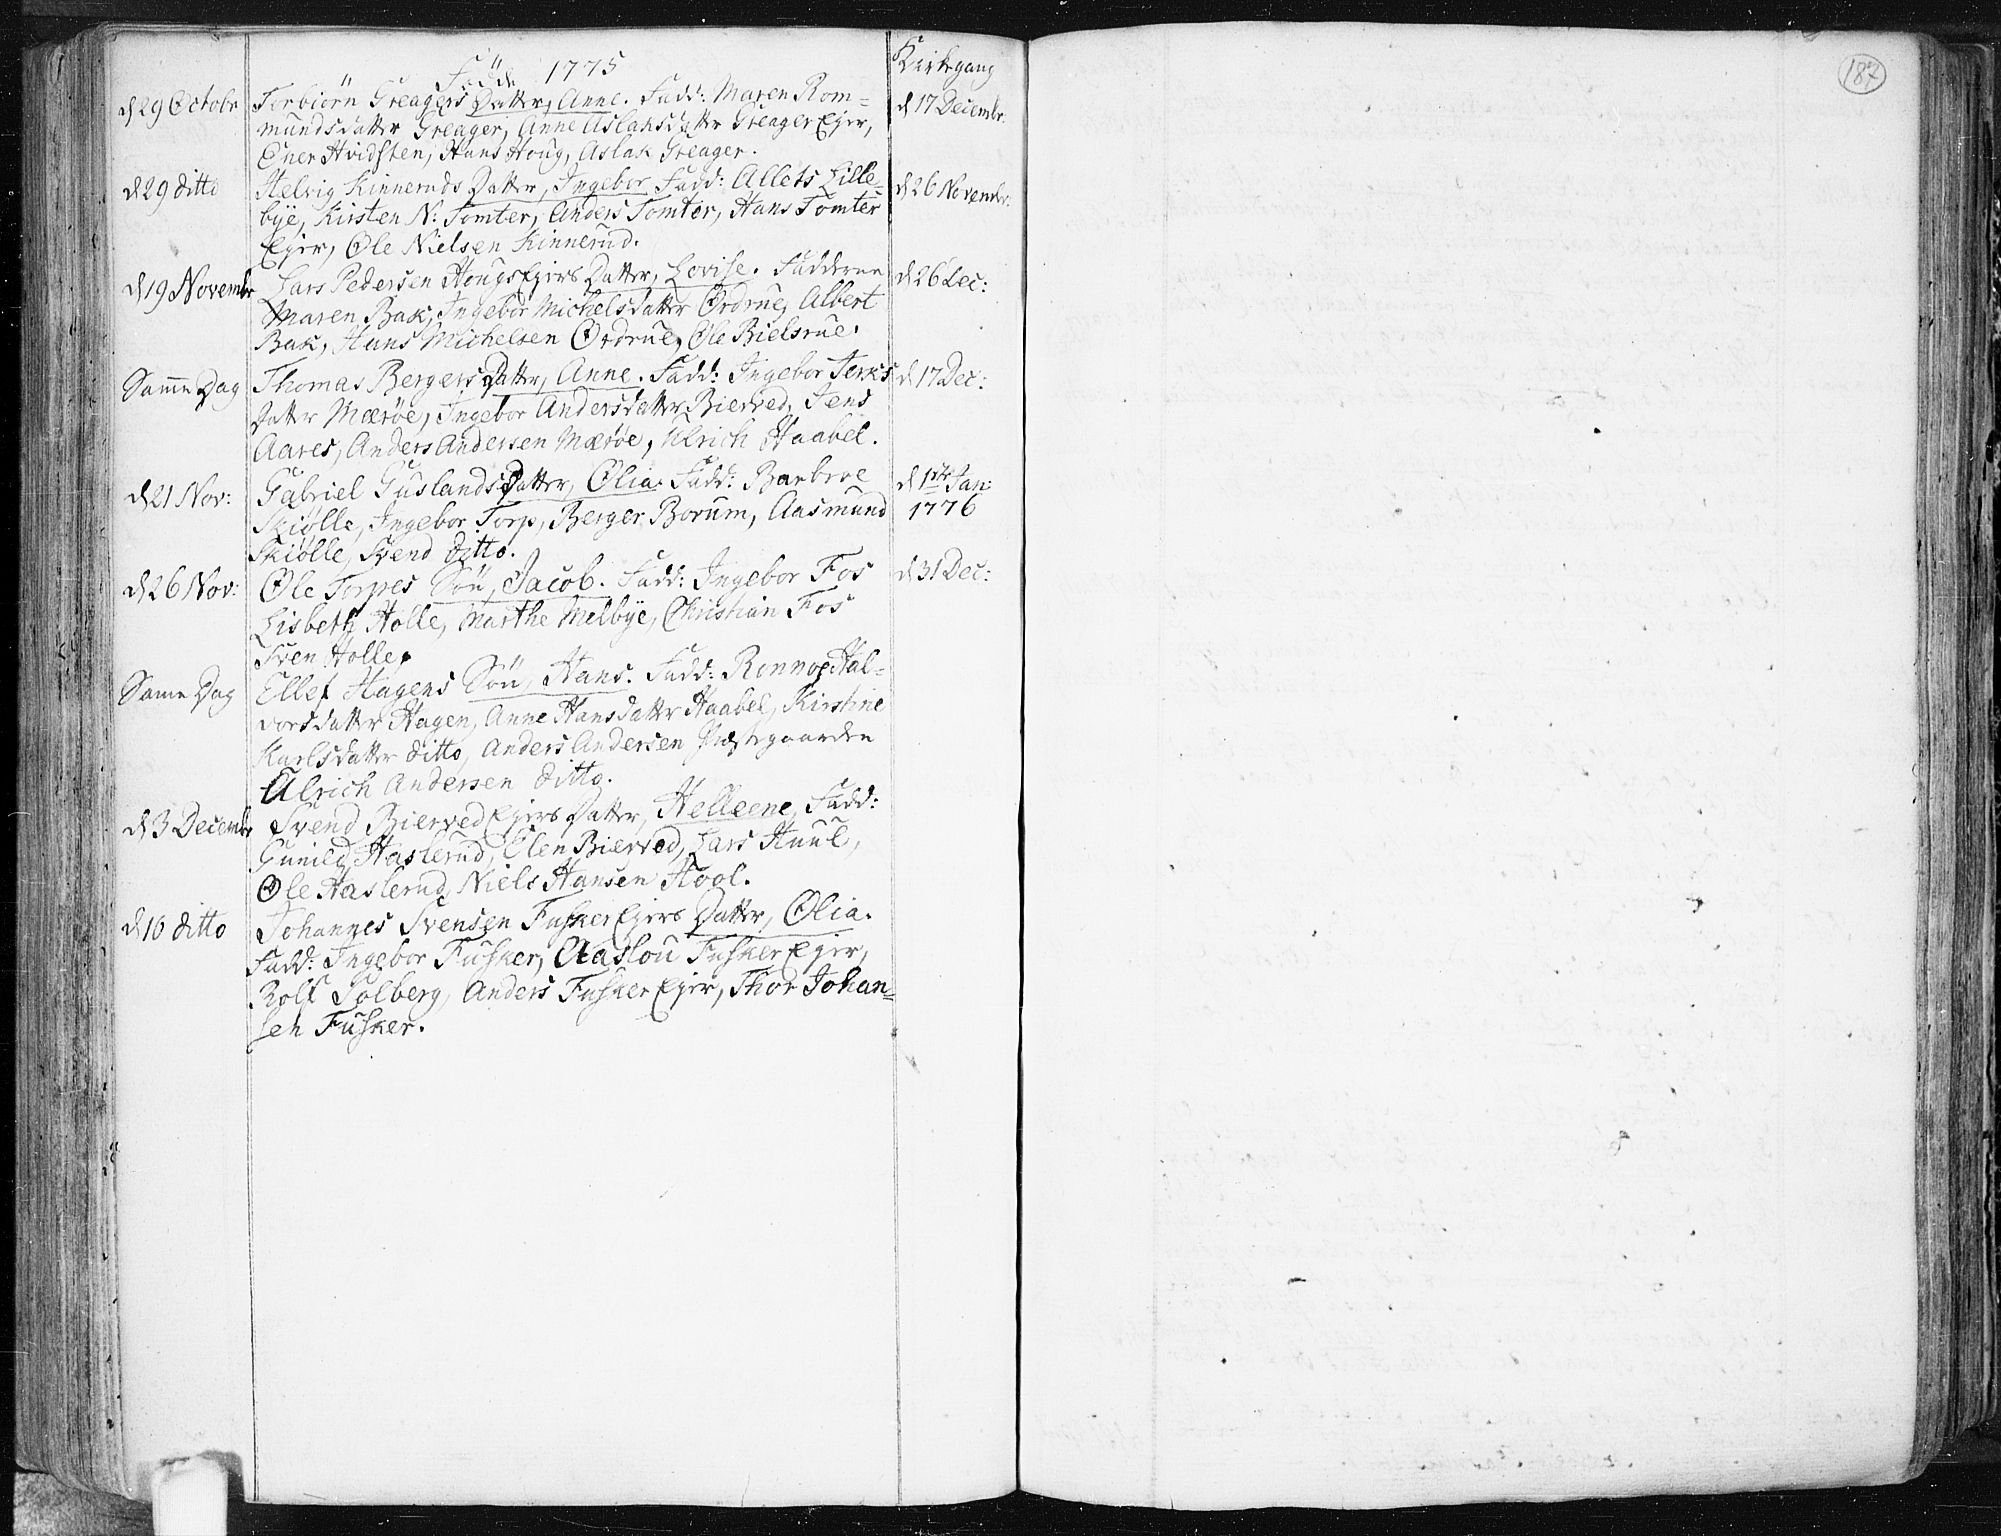 Födde 1775
Kirkegang
187
d 29 Octobr Torbiörn Greagers Datter, Anne. Fadd: Maren Rom= d 17 Decembr:
mundsdatter Greager, Anne Aslaksdatter Greager Eger,
Ener Hvidsten, Hans Houg, Aslak Greager.
d 29 ditto Helvig Kinneruds Datter, Ingebor Fadd: Allets Lille= d 26 Novembr:
bye, Kirsten N: Tomter, Anders Tomter, Hans Tomter
Eger, Ole Nielsen Kinnerud.
d 19 Novembr Lars Pedersen Hougs Egers Datter, Lovise. Fadderne d 26 Dec:
Maren Bak, Ingebor Michelsdatter Ordrue, Albert
Bak, Hans Michelsen Ordrue, Ole Bielsrue.
Same Dag Thomas Bergers Datter, Anne. Fadd: Ingebor Jerks d 17 Dec:
datter Mæröe, Ingebor Andersdatter Bierved, Jens
Aares, Anders Andersen Mæröe, Ulrich Haabel.
d 21 Nov: Gabriel Guslands Datter, Olia. Fadd: Barbroe d 1ste Jan:
Skiölle, Ingebor Torp, Berger Borum, Aasmund 1776
Skiölle, Svend ditto.
d 26 Nov: Ole Torpes Sön, Jacob. Fadd: Ingebor Fos d 31 Dec:
Lisbeth Holle, Marthe Melbye, Christian Fos
Sven Holle.
Same Dag Ellef Hagens Sön, Hans. Fadd: Ronnoe Hal=
vorsdatter Hagen, Anne Hansdatter Haabel, Kirstine
Karlsdatter ditto, Anders Andersen Præstegaarden
Ulrich Andersen ditto.
d 3 Decembr Svend Bierved Egers Datter, Helleene, Fadd:
Gunild Haslerud, Elen Bierved, Lars Huul,
Ole Haslerud, Niels Hansen Hool.
d 10 ditto Johannes Svensen Fusker Egers Datter, Olia.
Fadd: Ingebor Fusker, Aaslou Fusker Eger,
Rolf Solberg, Anders Fusker Eger, Thor Johan=
sen Fusker.